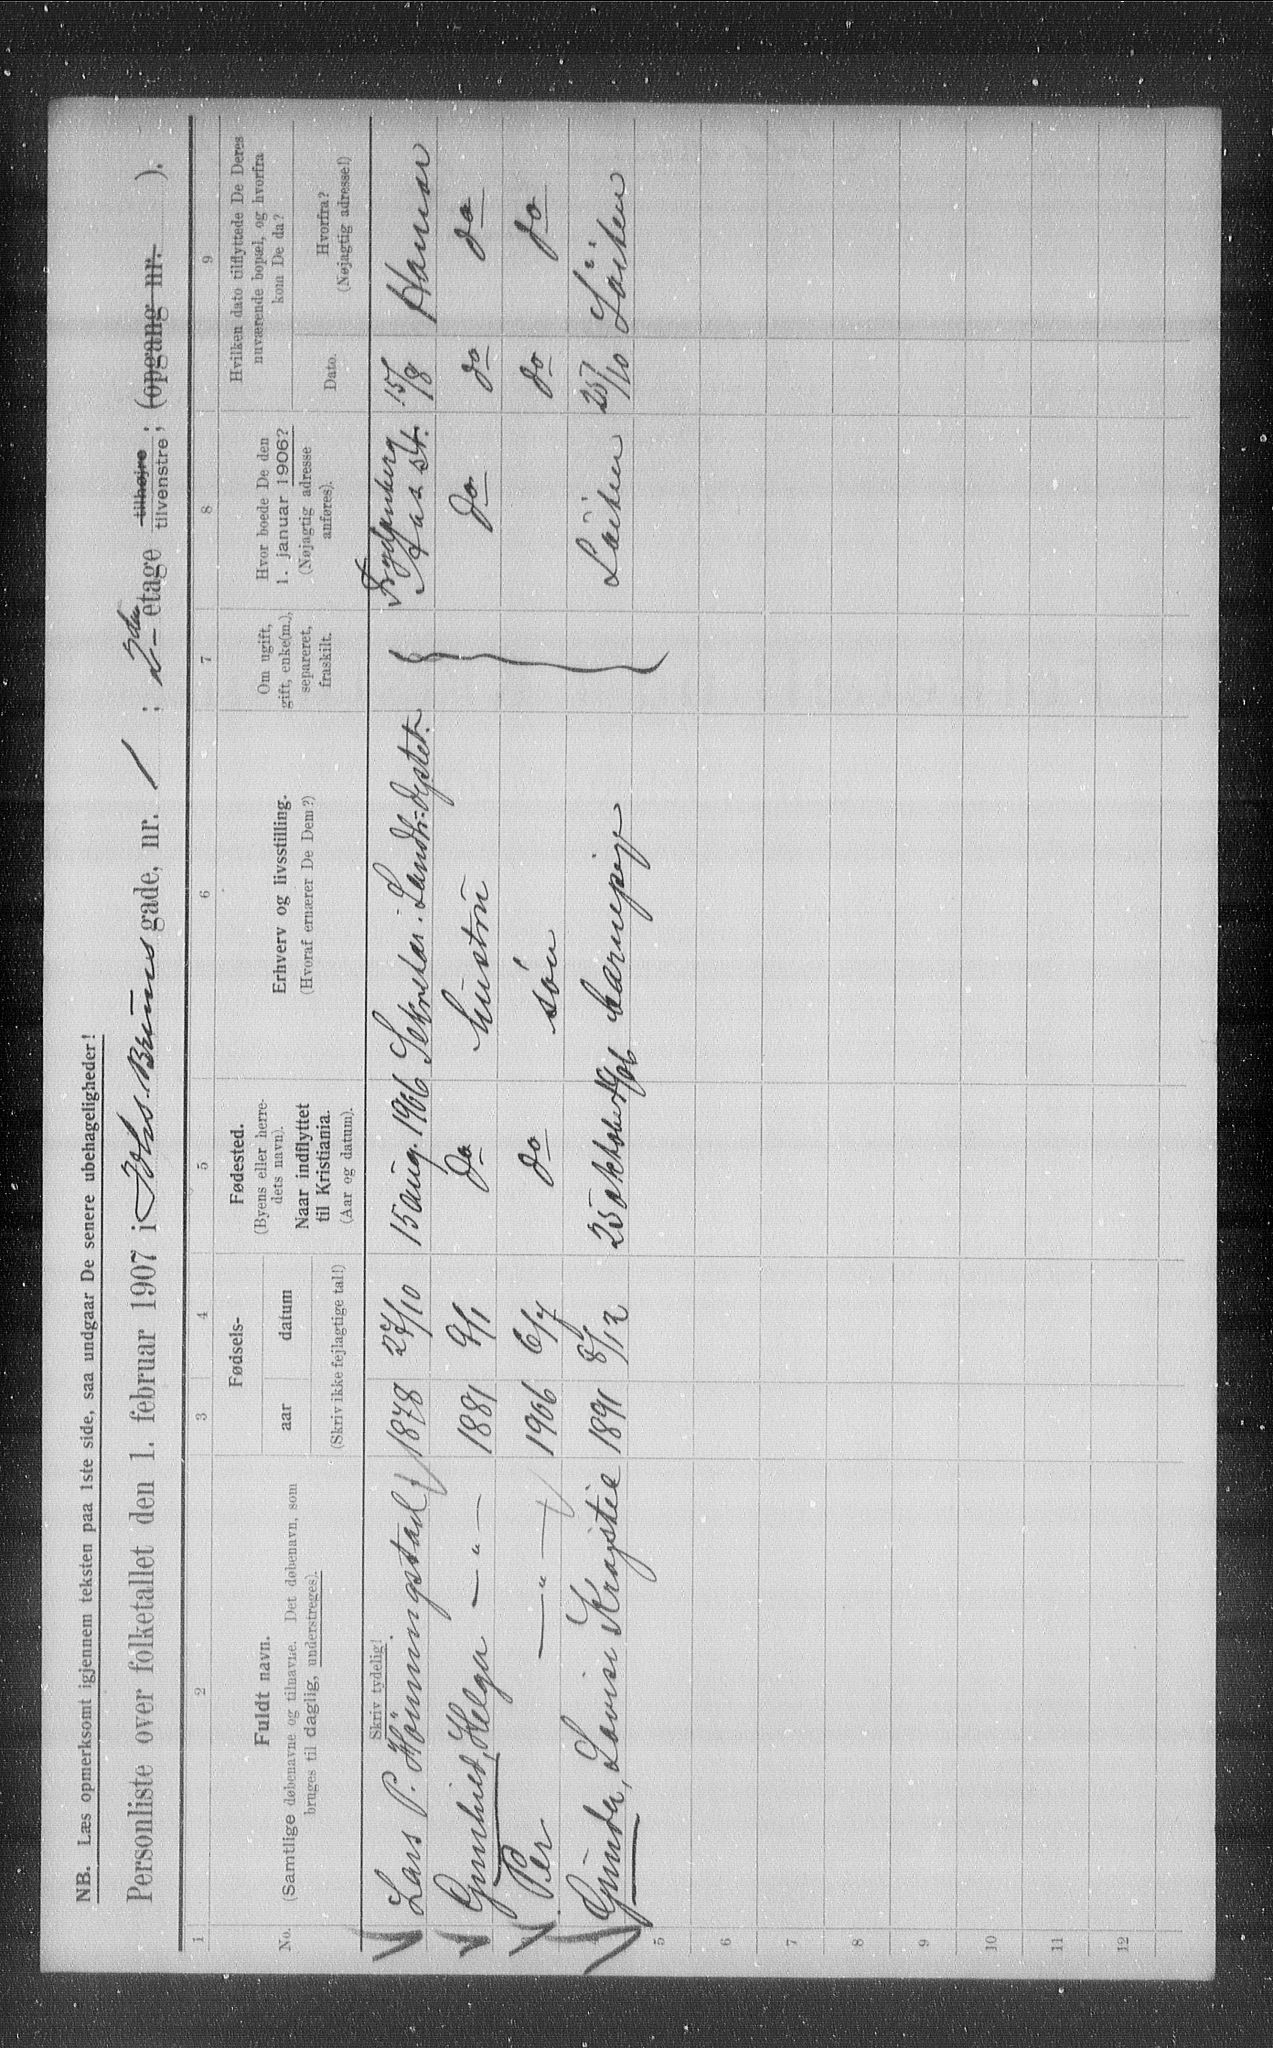 NB. Læs opmerksomt igjennem teksten paa 1ste side, saa undgaar De senere ubehageligheder!
Personliste over folketallet den 1. februar 1907 i Johs. Bruns gade, nr. 1 ; 2den etage tilhøjre tilvenstre; (opgang nr. ).
1 2 3 4 5 6 7 8 9
No.
Fuldt navn.
(Samtlige døbenavne og tilnavne. Det døbenavn, som
bruges til daglig, understreges).
Fødsels-
aar datum
(Skriv ikke fejlagtige tal!)
Fødested.
(Byens eller herre-
dets navn).
Naar indflyttet
til Kristiania.
(Aar og datum).
Erhverv og livsstilling.
(Hvoraf ernærer De Dem?)
Om ugift,
gift, enke(m.),
separeret,
fraskilt.
Hvor boede De den
1. januar 1906?
(Nøjagtig adresse
anføres).
Hvilken dato tilflyttede De Deres
nuværende bopæl, og hvorfra
kom De da?
Dato.
Hvorfra?
(Nøjagtig adresse!)
Skriv tydelig!
Lars P. Hønningstad 1878 27/10 15 aug. 1906 Sekretær i Landbr. 15/8 Hamar
Gunhild, Helga — " — 1881 9/1 do hustru do do do
Per — " — 1906 6/7 do søn do do
Gunda, Lovise Kragstie 1891 8/12 25 oktober 1906 barnepige Løiten 25/10 Løiten
5
6
7
8
9
10
11
12